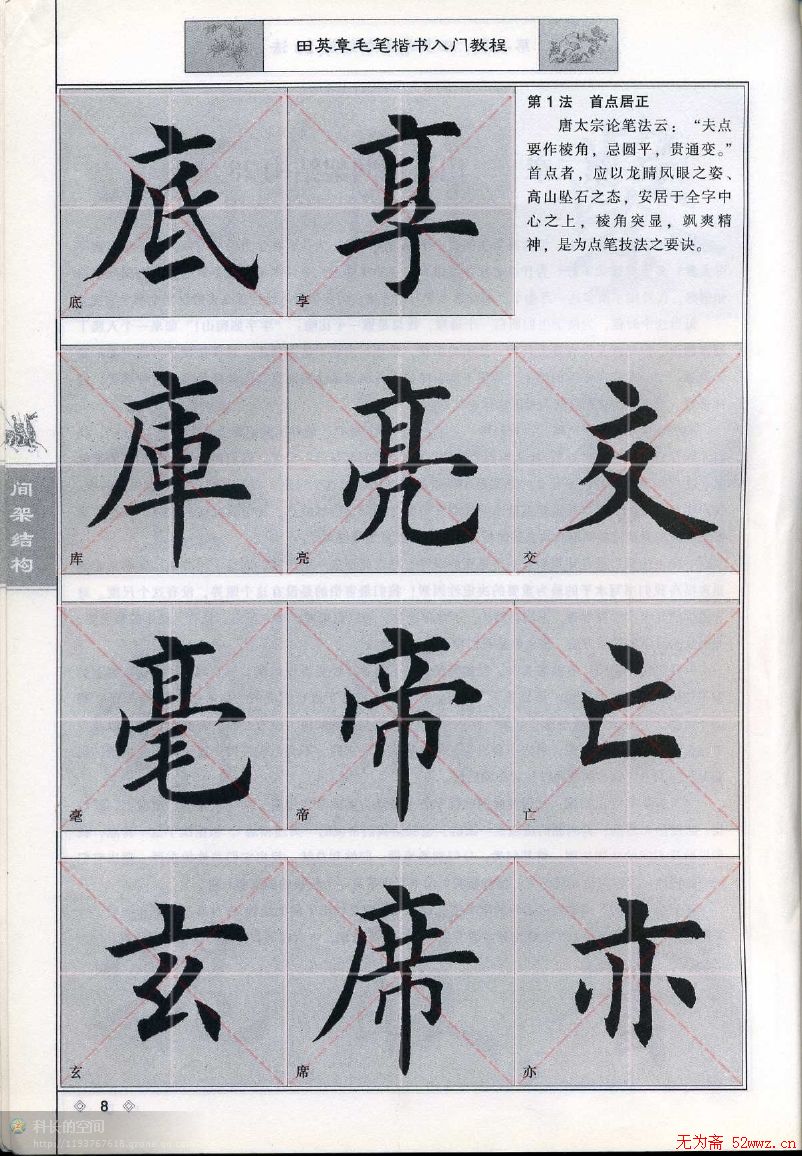 田英章毛笔楷书入门教程
第1法 首点居正
唐太宗论笔法云：“夫点
要作棱角，忌圆平，贵通变。”
首点者，应以龙睛凤眼之姿、
高山坠石之态，安居于全字中
心之上，棱角突显，飒爽精
神，是为点笔技法之要诀。
底 享
底 享
庫 亮 交
库 亮 交
毫 帝 亡
毫 帝 亡
玄 席 亦
玄 席 亦
间架结构
8
科长的空间
http://1193767618.qzone.qq.com
无为斋 52wwz.cn